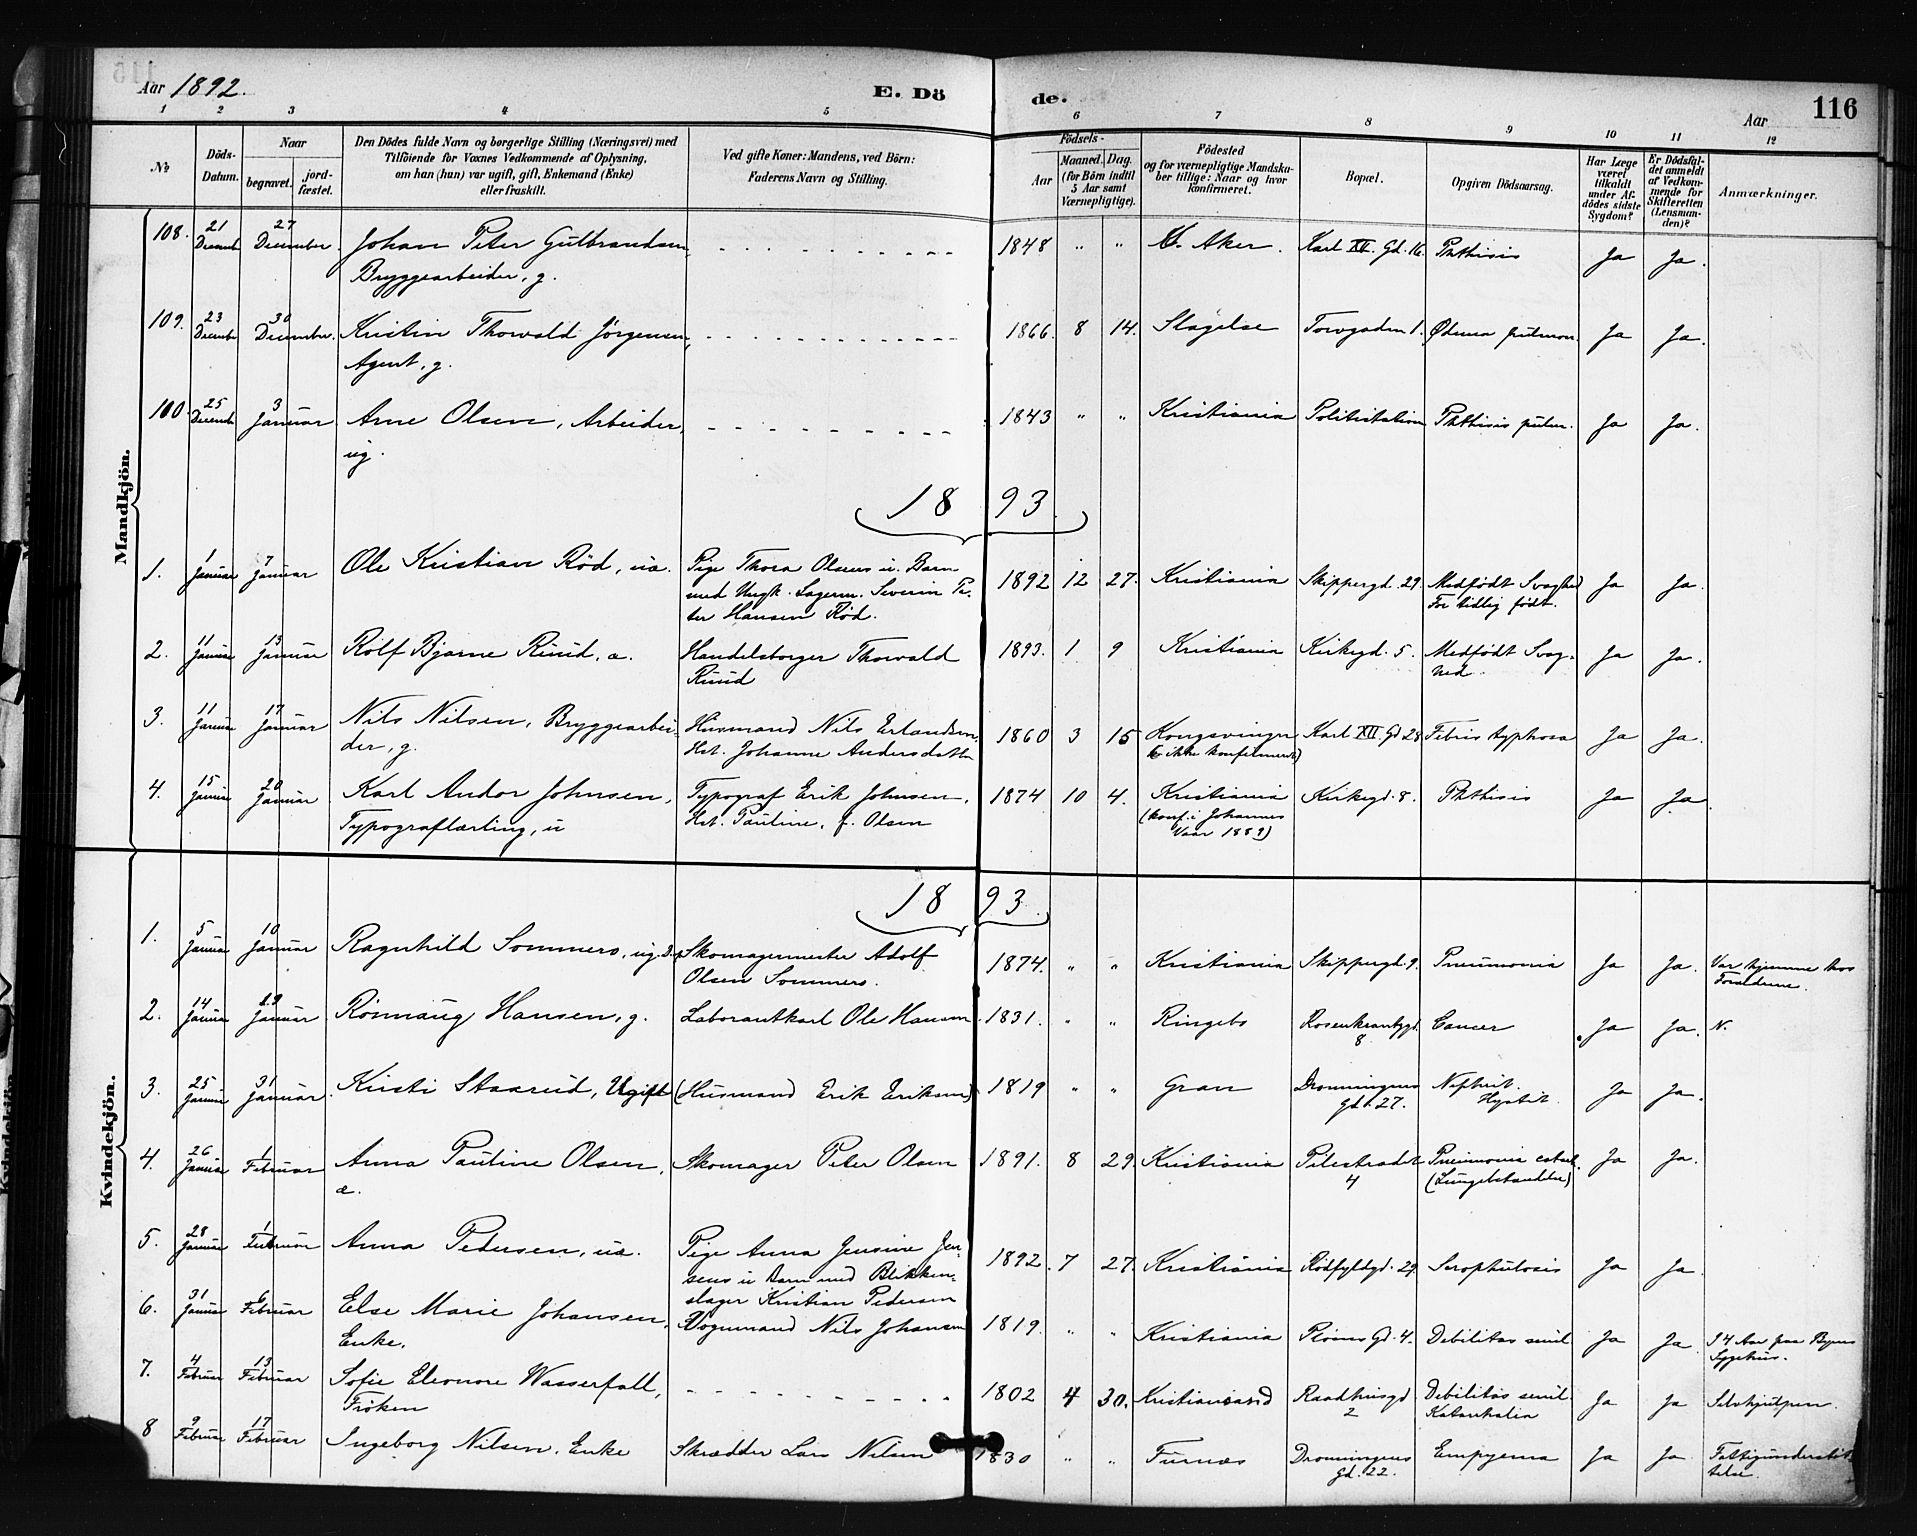 Aar 1892.
E. Döde.
Aar
116
1 2 3 4 5 6 7 8 9 10 11 12
№
Döds-Datum.
Naar
begravet.
jord-fæstet.
Den Dödes fulde Navn og borgerlige Stilling (Næringsvei) med
Tilföiende for Voxnes Vedkommende af Oplysning,
om han (hun) var ugift, gift, Enkemand (Enke)
eller fraskilt.
Ved gifte Koner: Mandens, ved Börn:
Faderens Navn og Stilling.
Födsels-
Aar
Maaned. Dag.
(for Börn indtil
5 Aar samt
Værnepligtige).
Födested
og for værnepligtige Mandska-
ber tillige: Naar og hvor
konfirmeret.
Bopæl.
Opgiven Dödsaarsag.
Har Læge
været
tilkaldt
under Af-
dödes sidste
Sygdom?
Er Dödsfal-
det anmeldt
af Vedkom-
mende for
Skifteretten
(Lensman-
den)?
Anmærkninger.
Mandkjön.
108. 21 Decemb 27 December. Johan Peter Gulbrandsen, - - - 1848 " " V. Aker. Karl XII. Gd. 16. Phthisis Ja Ja.
Bryggearbeider, g.
109. 23 Decembr 30 December. Kristin Thorvald Jörgensen, - - - 1866. 8 14. Slagelse Torvgaden 1. Ødema pulmon. Ja Ja.
Agent, g.
100. 25 Decemb 3 Januar Arne Olsen, Arbeider, - - - 1843 " " Kristiania Politistation Phthisis pulm. Ja Ja.
ug.
1893.
1. 1 Januar 7 Januar Ole Kristian Röd, uæ. Pige Thora Olsens u. Barn 1892 12 27. Kristiania Skippergd. 29. Medfödt Svaghed Ja Ja.
med Ungk. Lagerm. Severin Pe- For tidlig födt.
ter Hansen Röd.
2. 11 Januar 13 Januar Rolf Bjarne Ruud, æ. Handelsborger Thorvald 1893. 1 9 Kristiania Kirkegd. 5. Medfödt Svag- Ja Ja.
Ruud hed.
3. 11 Januar 17 Januar Nils Nilsen, Bryggearbei- Husmand Nils Erlandsen, 1860 3 15 Kongsvinger Karl XII. Gd 28 Febris typhosa Ja Ja.
der, g. Hst. Johanne Andersdatter ikke konfirmeret)
4. 15 Januar 20 Januar Karl Andor Johnsen, Typograf Erik Johnsen, 1874 10 4. Kristiania Kirkegd. 8. Phthisis Ja Ja.
Typograflærling, u Hst. Pauline, f. Olsen (konf. i Johannes
Vaar 1889)
Kvindekjön.
1893.
1. 5 Januar 10 Januar Ragnhild Sommers, ug. D. af Skomagermester Adolf 1874. " " Kristiania Skippergd. 9. Pneumonia Ja Ja. Var hjemme hos
Olsen Sommers. Forældrene.
2. 14 Januar 19 Januar Rönnaug Hansen, g. Laborantkarl Ole Hansen 1831. " " Ringebo Rosenkrantzgd. Cancer Ja Ja. N.
8
3. 25 Januar 31 Januar. Kirsti Staarud, Ugift (Husmand Erik Eriksen) 1819 " " Gran Dronningens Nefhrit. Ja Ja.
Gd. 27.
4. 26 Januar 1 Februar Anna Pauline Olsen, Skomager Peter Olsen 1891. 8 29. Kristiania Pilestradet Pneumonia catarh. Ja Ja.
æ. 4 (Lungebetændelse)
5. 28 Januar 1 Februar Anna Pedersen, uæ. Pige Anna Jensine Jen- 1892. 7 27. Kristiania Rödfyldgd. 29. Scrophulosis Ja Ja.
sens u Barn med Blikken-
slager Kristian Pedersen
6. 31 Januar 6 Februar Else Marie Johansen, Vognmand Nils Johansen 1819. " " Kristiania Plöens Gd. 4. Debilitas senil Ja Ja. 34 Aar paa Byens
Enke. Sygehus.
7. 4 Februar 13 Februar Sofie Eleonore Wasserfall, - - - 1802 4 30. Kristiansand Raadhusgd Debilitas senil. Ja Ja Selvhjulpen.
Fröken 2
8 9 Februar 17 Februar Ingeborg Nilsen, Enke Skrædder Lars Nilsen 1830 " " Furnæs Dronningens Empyema Ja Ja. Fattigunderstöt-
Gd. 22. telse.